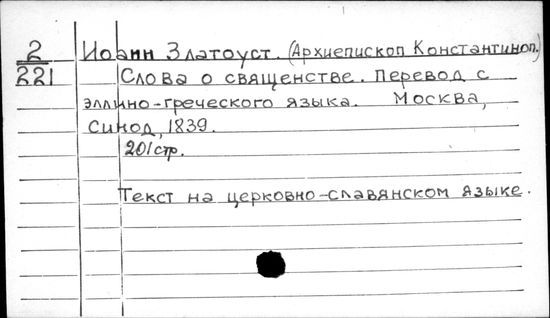 2
221
Иоанн Златоуст. (Архиепископ Константиноп.)
Слова о священстве. Перевод с
эллино-греческого языка. Москва,
Синод, 1839.
201 стр.
Текст на церковно-славянском языке.